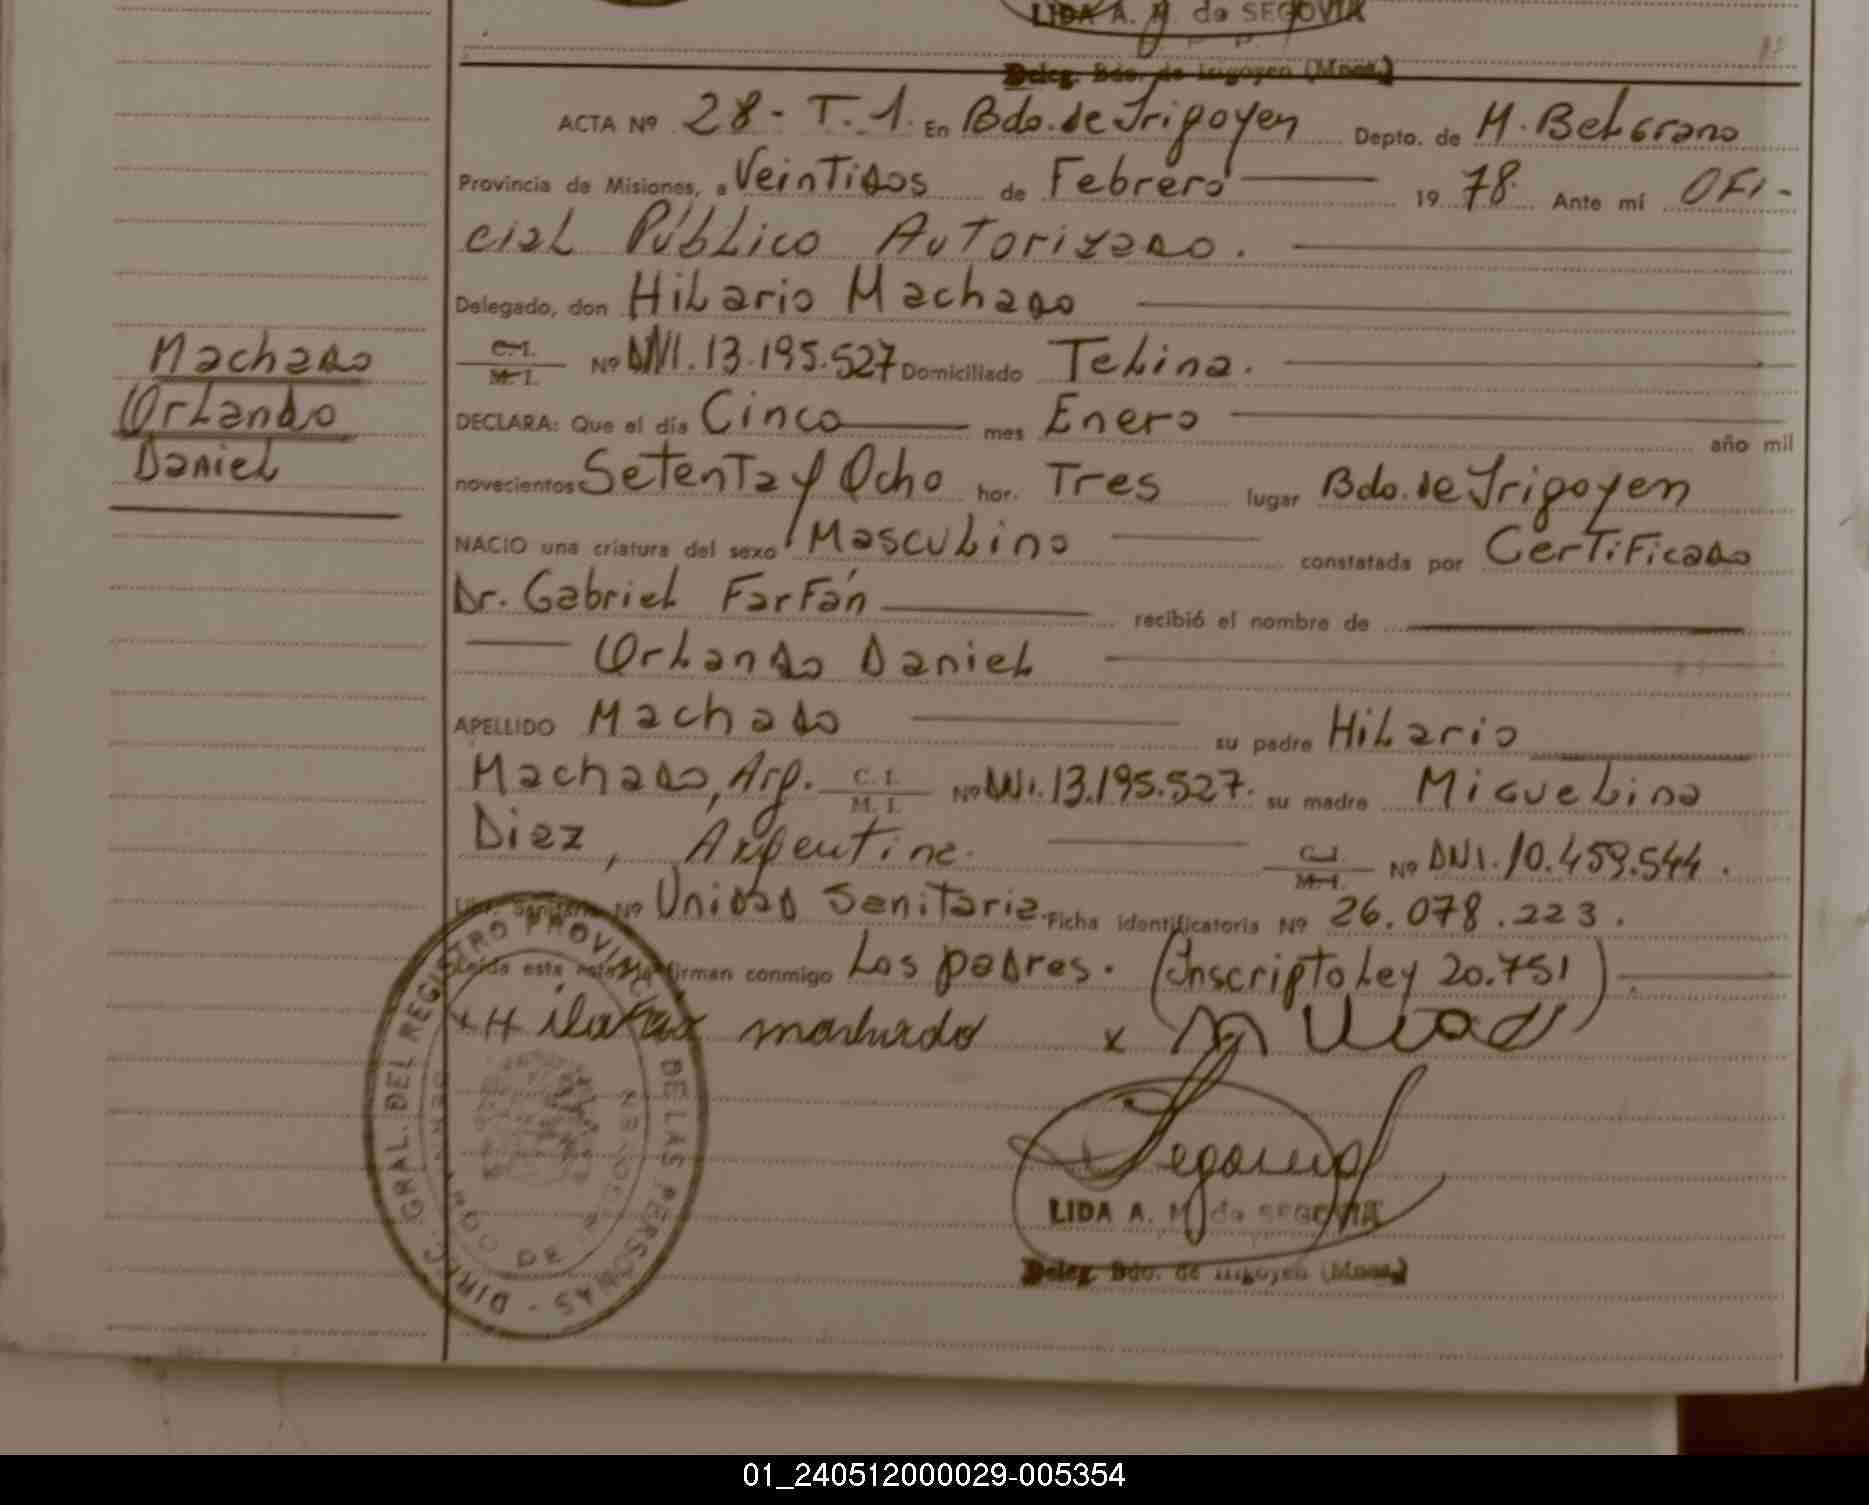 LIDA A. M. de SEGOVIA
Deleg. Bdo. de Irigoyen (Mnes.)
ACTA Nº 28 - T. 1. En Bdo. de Irigoyen Depto. de M. Belgrano
Provincia de Misiones, a Veintidos de Febrero 1978. Ante mí OFI-
cial Público Autorizado.
Delegado, don Hilario Machado
C.I. M.I. Nº DNI. 13.195.527 Domiciliado Telina.
DECLARA: Que el día Cinco mes Enero año mil
novecientos Setenta y Ocho hor. Tres lugar Bdo. de Irigoyen
NACIO una criatura del sexo Masculino constatada por Certificado
Dr. Gabriel Farfán recibió el nombre de
Orlando Daniel
APELLIDO Machado su padre Hilario
Machado, Arg. C.I. M.I. Nº DNI. 13.195.527. su madre Miguelina
Diez, Argentina. C.I. M.I. Nº DNI. 10.459.544.
Libr. Sanitaria Nº Unidad Sanitaria. Ficha identificatoria Nº 26.078.223.
Leída esta acta la firman conmigo Los padres. (Inscripto Ley 20.751)
x Hilario machado x
Segovia
LIDA A. M. de SEGOVIA
Deleg. Bdo. de Irigoyen (Mnes.)
Machado
Orlando
Daniel
DIREC. GRAL. DEL REGISTRO PROVINCIAL DE LAS PERSONAS
01_240512000029-005354